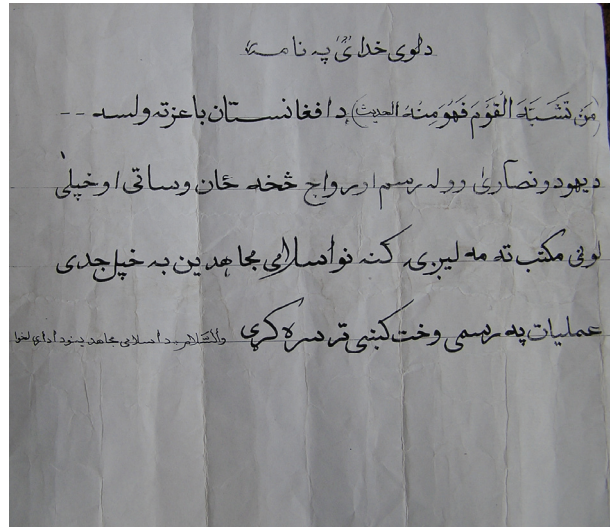 د لوی خدای په نامه
(مَن تَشَبَّهَ القَوْمَ فَهُوَ مِنْهُ الحدیث) د افغانستان باعزته ولسه --
د یهود و نصاریٰ د رسم او رواج څخه ځان وساتی او خپلی
لوڼی مکتب ته مه لیږی، کنه نو اسلامی مجاهدین به خپل جدی
عملیات په رسمی وخت کښی تر سره کړی والسلام د اسلامی مجاهدینو د